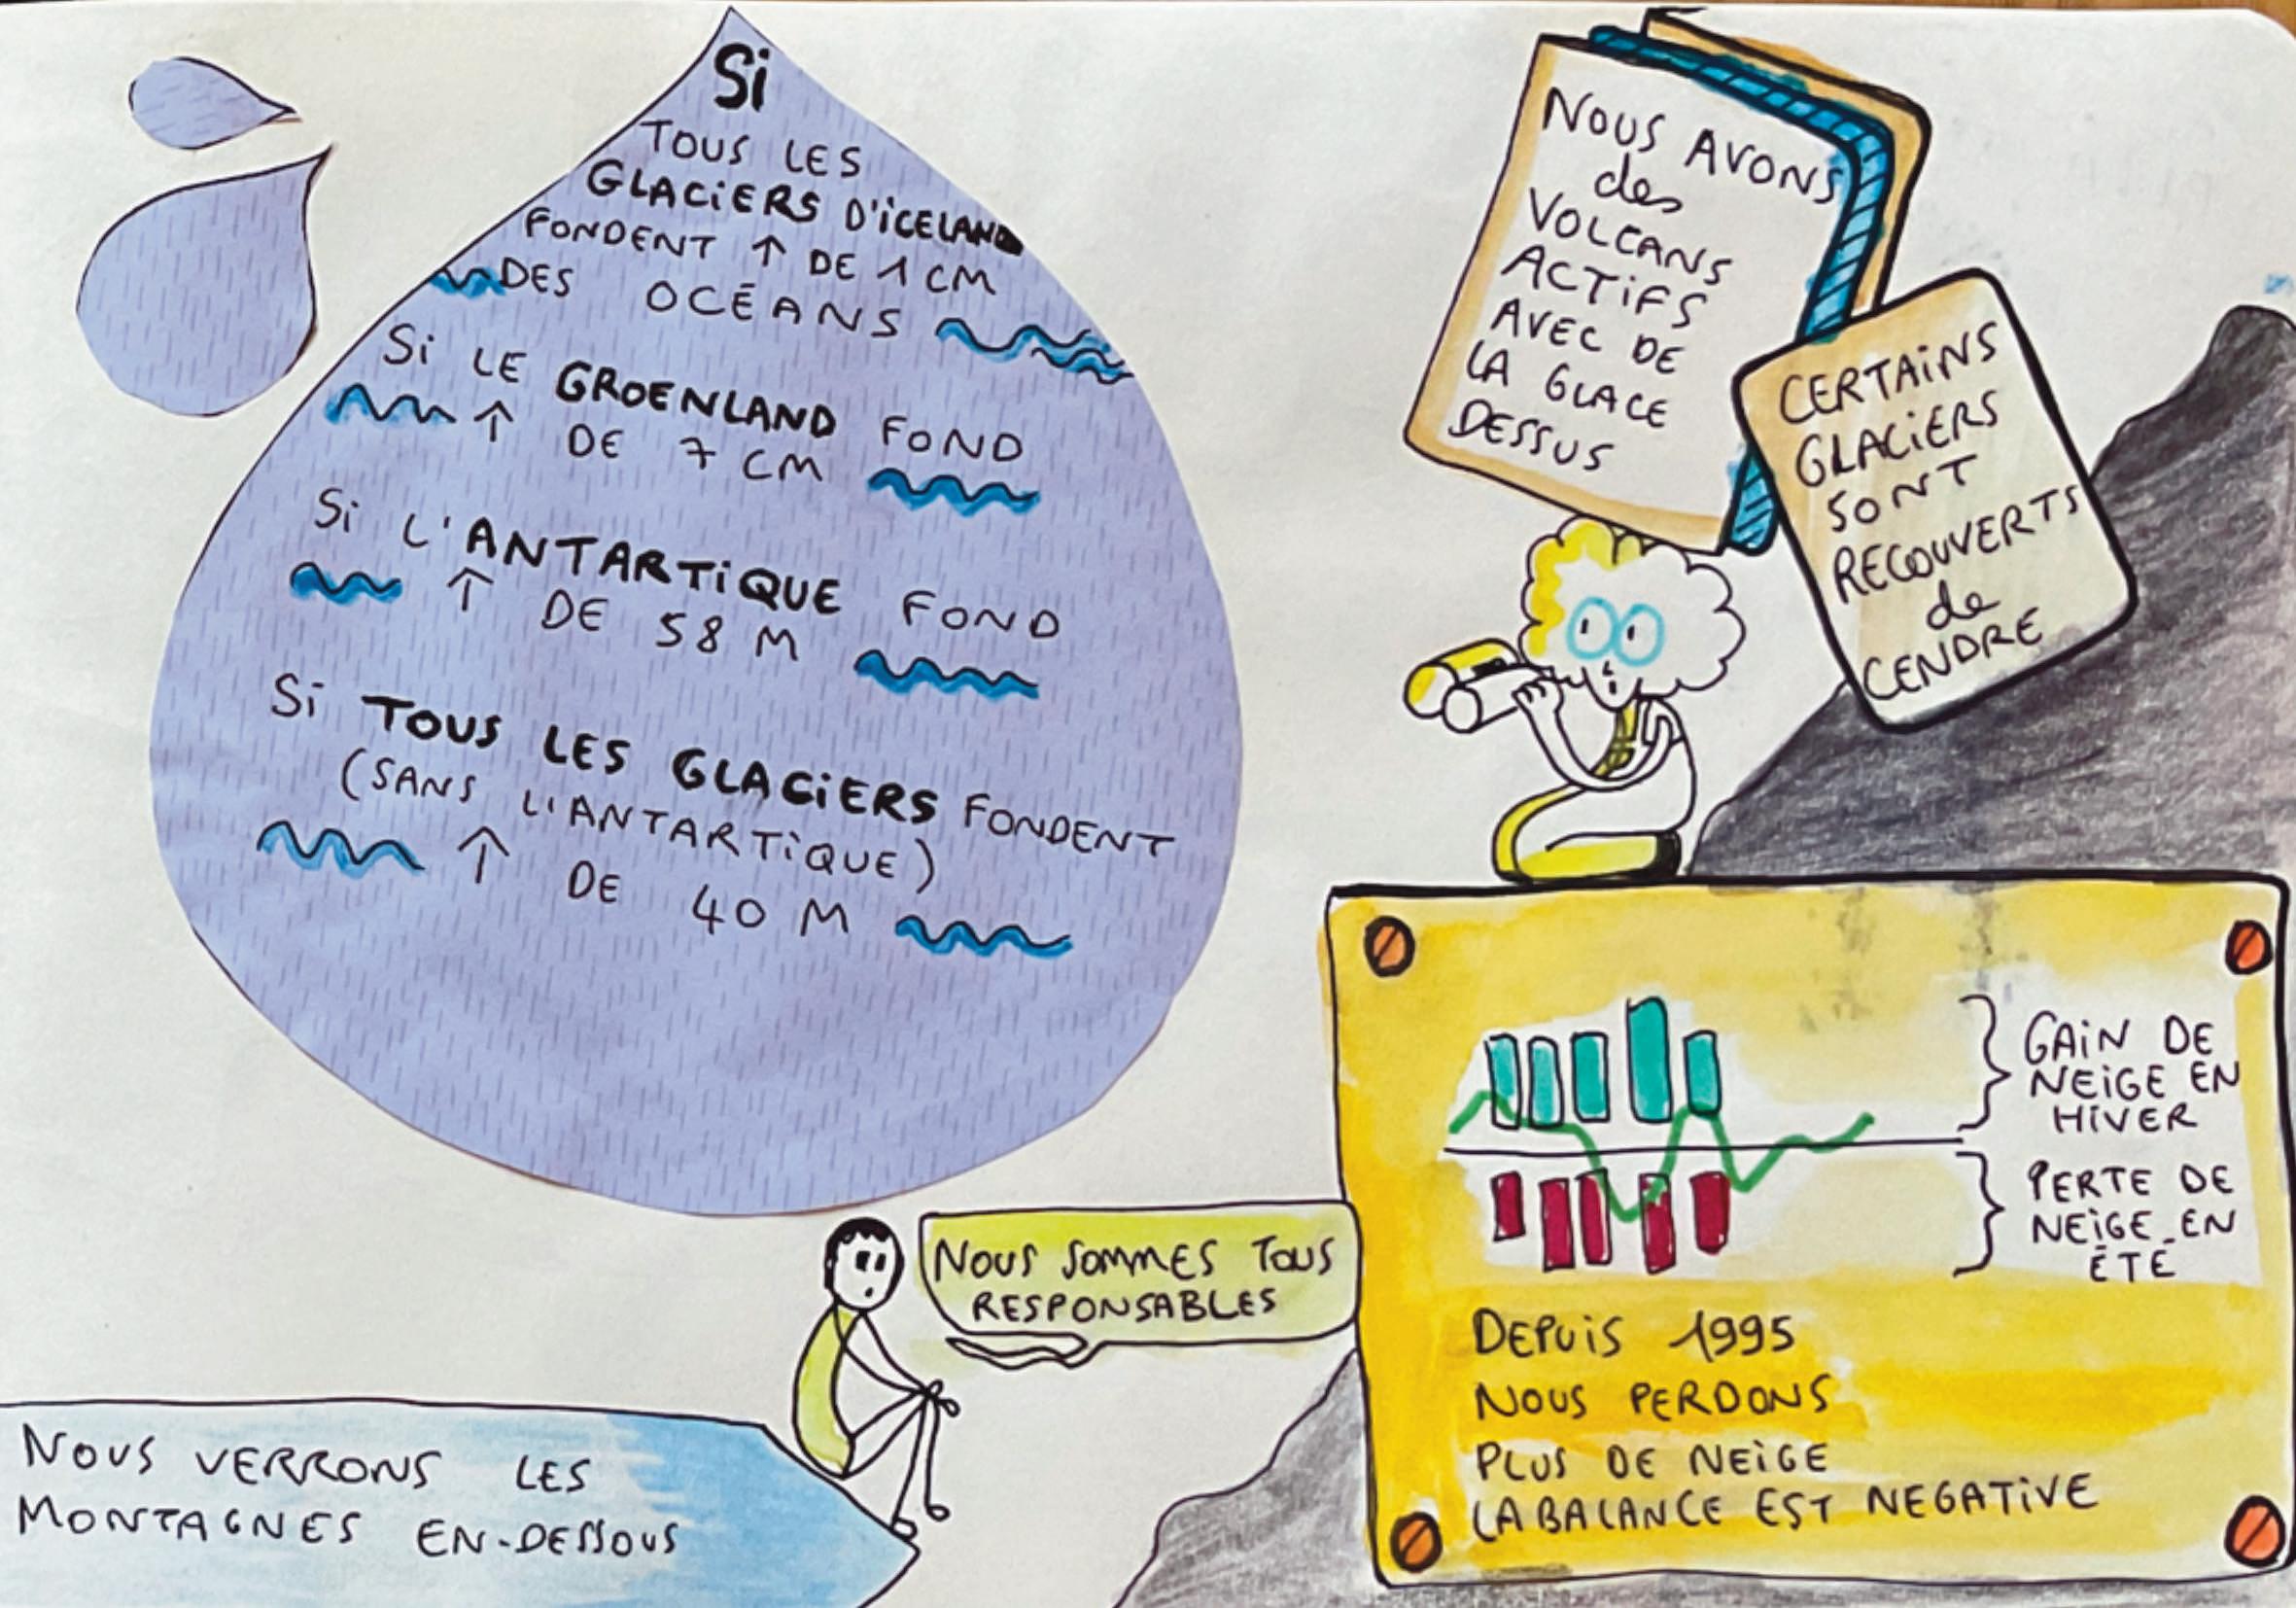 Si
TOUS LES
GLACiERS D'iCELAND
FONDENT ↑ DE 1 CM
DES OCÉANS
Si LE GROENLAND FOND
↑ DE 7 CM
Si L'ANTARTiQUE FOND
↑ DE 58 M
Si TOUS LES GLACiERS FONDENT
(SANS L'ANTARTiQUE)
↑ DE 40 M
NOUS AVONS
des
VOLCANS
ACTiFS
AVEC DE
LA GLACE
DESSUS
CERTAiNS
GLACiERS
SONT
RECOUVERTS
de
CENDRE
GAiN DE
NEiGE EN
HiVER
PERTE DE
NEiGE EN
ÉTÉ
DEPUiS 1995
NOUS PERDONS
PLUS DE NEiGE
LA BALANCE EST NEGATiVE
NOUS SOMMES TOUS
RESPONSABLES
NOUS VERRONS LES
MONTAGNES EN-DESSOUS